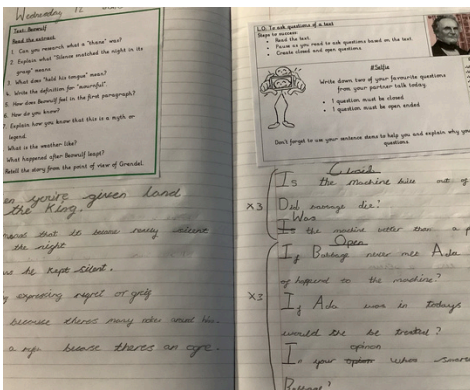 Wednesday 12
Text: Beowulf
Read the extract
1. Can you research what a "thane" was?
2. Explain what "Silence snatched the night in its grasp" means
3. What does "hold his tongue" mean?
4. Write the definition for "mournful".
5. How does Beowulf feel in the first paragraph?
6. How do you know?
7. Explain how you know that this is a myth or legend.
What is the weather like?
What happened after Beowulf leapt?
Retell the story from the point of view of Grendel.
you're given land
the King.
that it became really
the night
he kept silent.
expressing regret or
because theres many
a myth theres an ogre.
L.O. To ask questions of a text
Steps to success:
Read the text.
Pause as you read to ask questions based on the text.
Create closed and open questions
#Selfie
Write down two of your favourite questions
from your partner talk today
1 question must be closed
1 question must be open ended
Don't forget to use your sentence stems to help you and explain why you
questions
Closed
Is the machine out of
x3
Did die?
Was
the machine better than a
Open
If Babbage never met Ada
of happend to the machine?
x3
If Ada was in todays
would she be treated?
opinion
In your whos
Babbage?